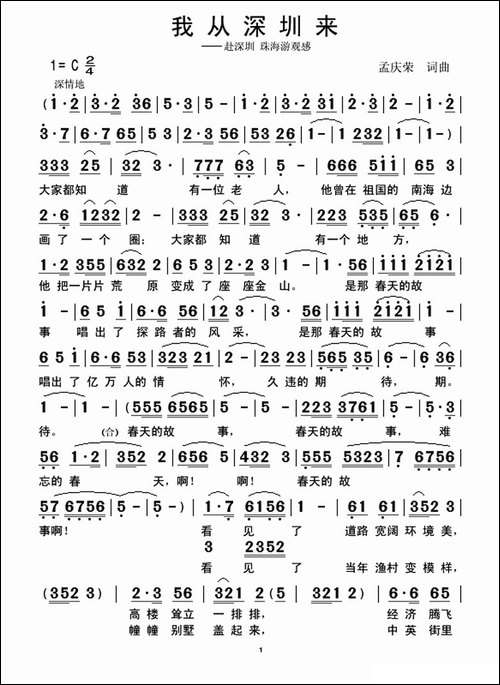 我从深圳来
——赴深圳 珠海游观感
1=C 2/4
孟庆荣 词曲
深情地
(1·2 | 3·2 36 | 5·3 | 5 - | 1·2 | 3·2 31 | 2·3 | 2 - |
3·2 35 | 6·7 65 | 53 | 2·3 56 | 53 26 | 1 - | 1 232 | 1 - | 1 -) |
333 25 | 32 3· | 777 63 | 5 - | 666 511 | 65 3 |
大家都知 道 有一位 老 人, 他曾在 祖国的 南海 边
2·6 1232 | 2 - | 333 25 | 32 3· | 223 535 | 65 6· |
画 了 一 个 圈; 大家都 知 道 有一个 地 方,
1·2 355 | 632 2 | 65 6 53 | 2·3 2 | 1 - | 1·56 | 111 2121 |
他 把一片片 荒 原 变成 了 座 座金 山。 是那 春天的故
6 5 | 65 1 | 6·6 56 | 12 3· | 2·3 56 | 111 2121 |
事 唱出 了 探 路者的 风 采, 是那 春天的 故 事
65 1 | 2·2 | 53·56 | 323 21 | 2 - | 2·23 | 565 35 | 6 - | 6· 36 |
唱出 了 亿 万 人的 情 怀, 久 违的 期 待, 期。
1 - | 1 - | (555 6565 | 5 - | 5 - | 223 3761 | 5 - | 5·3 |
待。 (合) 春天的故 事, 春天的故 事, 难
56 1·2 | 352 | 656 | 56 4 | 432 3 | 555 5323 | 7 6756 |
忘的 春 天, 啊! 啊! 春天的 故
57 6756 | 5 - | 5 -) | 1·7 6156 | 5·3 | 235 352 |
事啊! 看 见 了 道路 宽阔 环 境 美,
3 2352
看 见 了 当年 渔村 变 模样,
(352 3) | 2·3 56 | 352 1 | (352 1) | 6·6 65 |
高 楼 耸立 一 排排, 经 济 腾飞
幢幢 别墅 盖起来, 中 英 街里
1